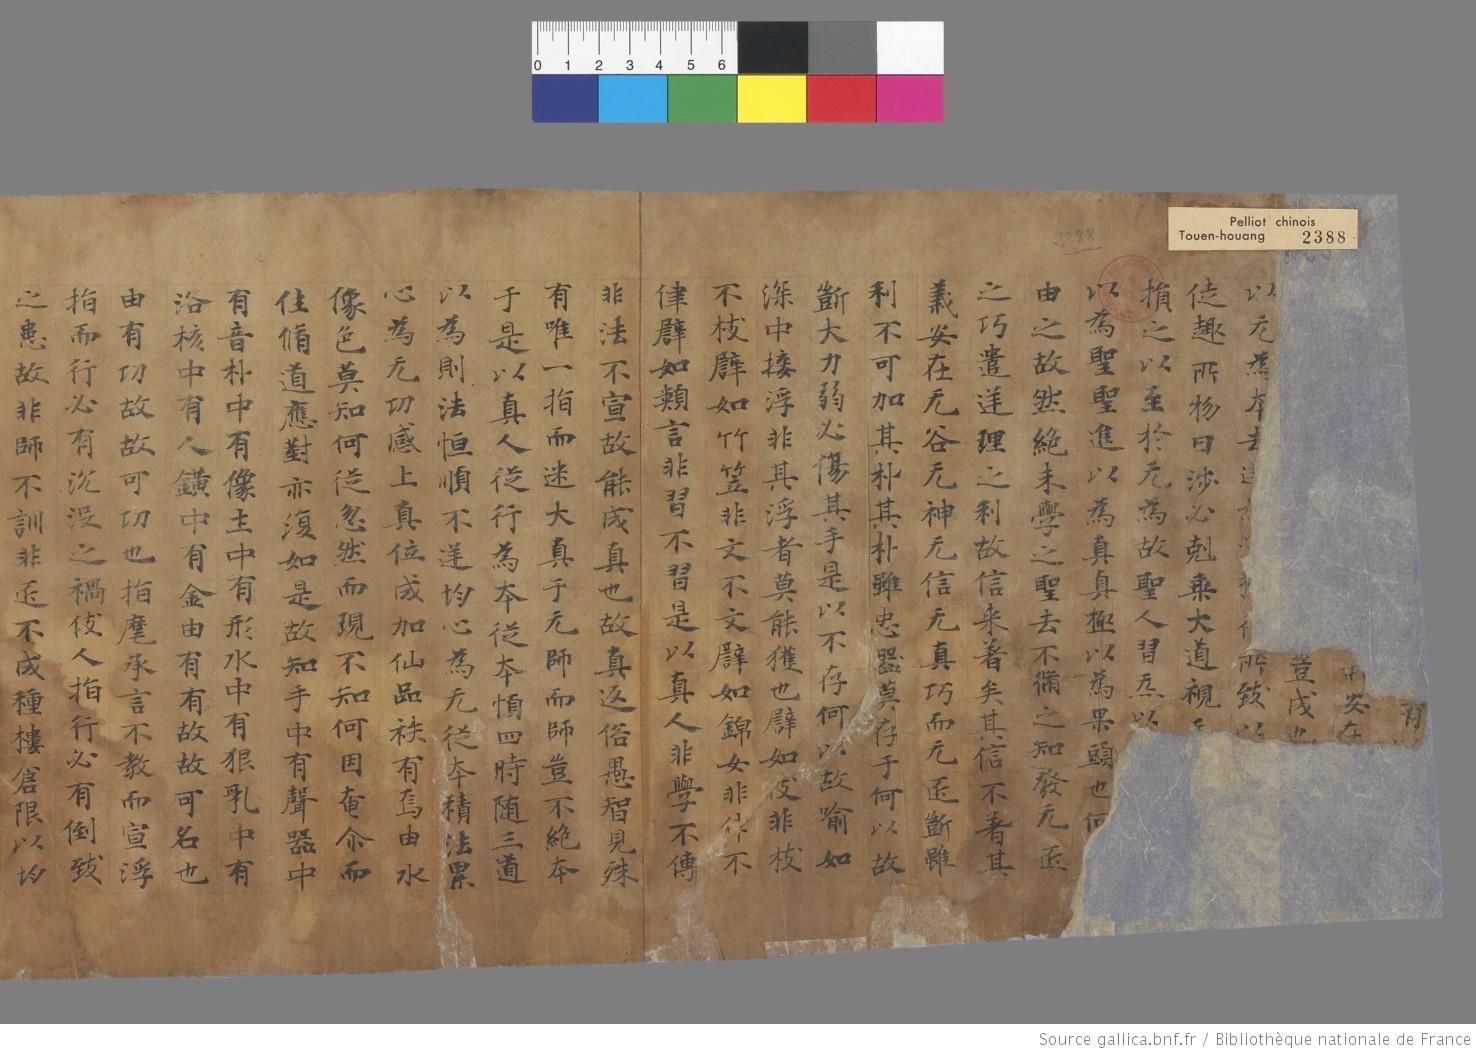 0 1 2 3 4 5 6
Pelliot chinois
Touen-houang 2388
2388
有
安在
豈成也
以无為本去 所致以
徒趣所物日涉必剋乘大道視
損之以至於无為故聖人習炁以
以為聖聖進以為真真極以為果頭也何
由之故然絶未學之聖去不備之知發无
之巧遣逆理之利故信来著矣其信不著其
義安在无谷无神无信无真巧而无匠斷雖
利不可加其朴其朴雖忠器莫存于何以故
斷大力弱必傷其手是以不存何以故喻如
深中接浮非其浮者莫能獲也譬如伎非枝
不枝譬如竹笠非文不文譬如錦女非作不
律譬如類言非習不習是以真人非學不傳
非法不宣故能成真也故真返俗愚智見殊
有唯一指而迷大真于无師而師豈不絶本
于是以真人從行為本從本慎四時随三道
以為則法恒順不逆均心為无從本積法累
心為无功感上真位成加仙品袟有焉由水
像色莫知何從忽然而現不知何因奄尒而
住脩道應對亦復如是故知手中有聲器中
有音朴中有像土中有形水中有狠乳中有
洛核中有人鑛中有金由有有故故可名也
由有功故故可功也指麾承言不教而宣浮
指而行必有沉没之禍伎人指行必有倒致
之患故非師不訓非匠不成種樓倉限以均
Source gallica.bnf.fr / Bibliothèque nationale de France